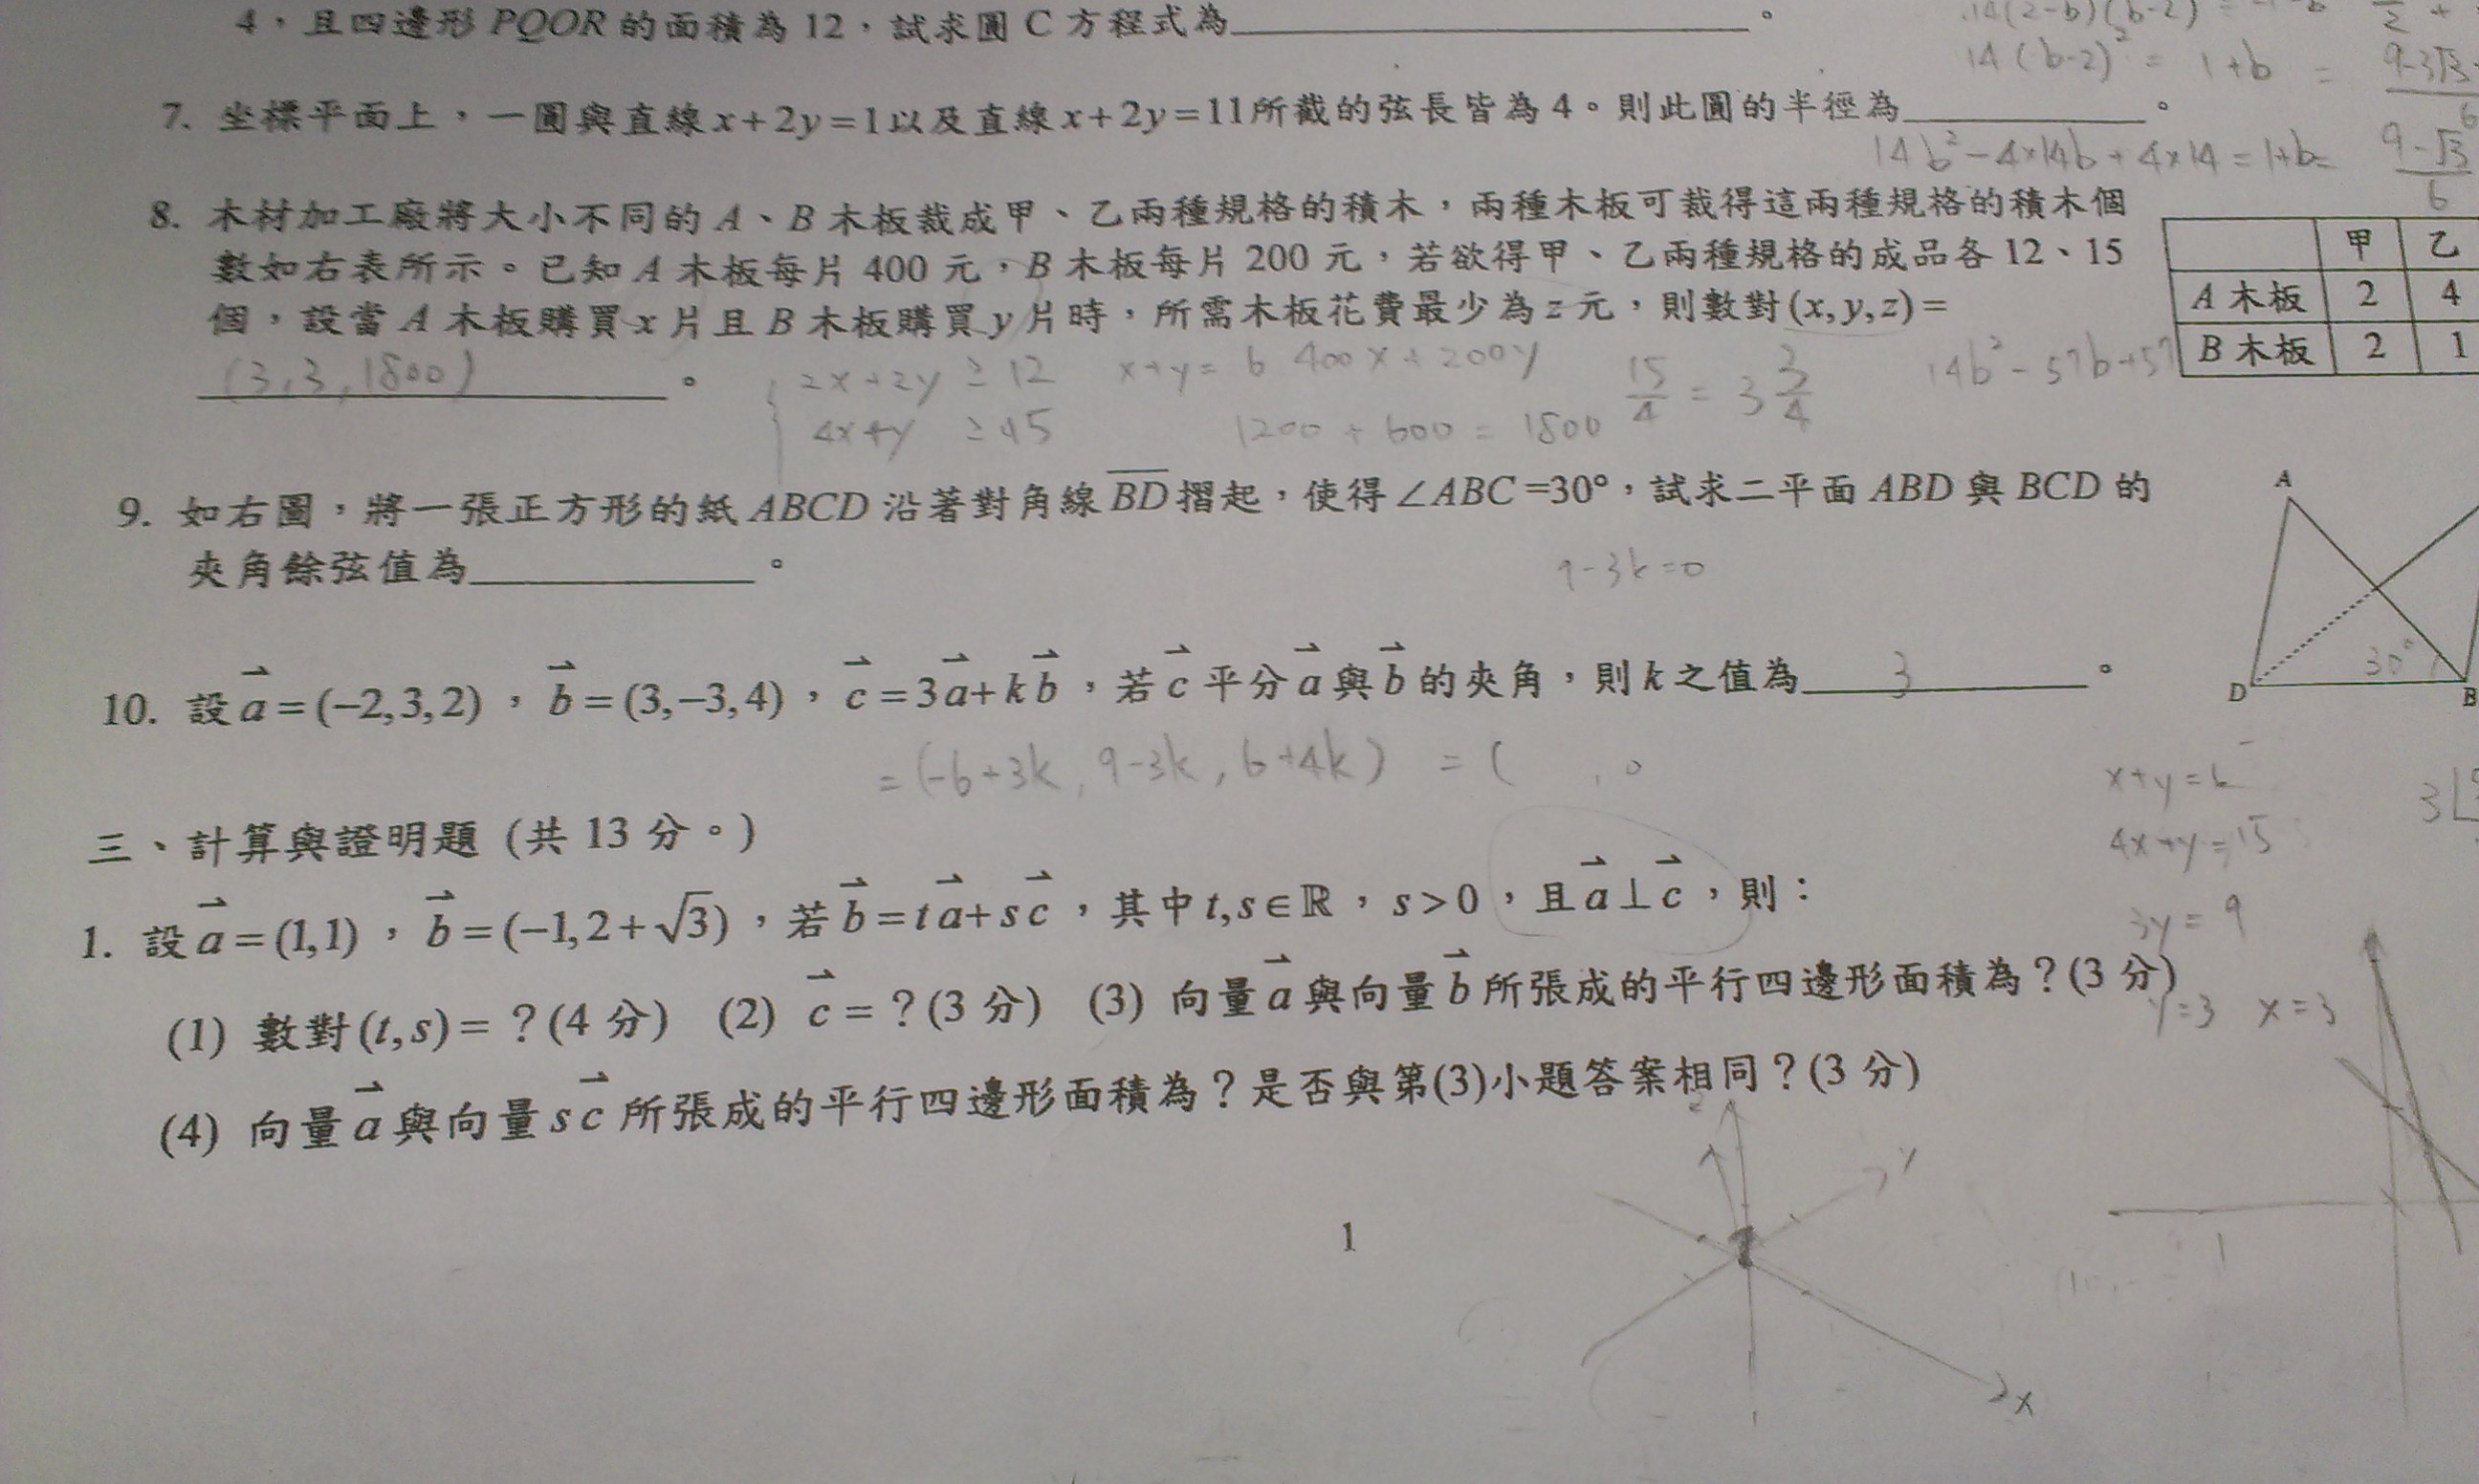 4,且四邊形 PQOR 的面積為 12,試求圓 C 方程式為____________。
14(2-b)(b-2)
14(b-2)² = 1+b
= 9-3√3
6
7. 坐標平面上,一圓與直線 x+2y=1 以及直線 x+2y=11 所截的弦長皆為 4。則此圓的半徑為____________。
14b²-4×14b+4×14=1+b=
9-√3
6
8. 木材加工廠將大小不同的 A、B 木板裁成甲、乙兩種規格的積木,兩種木板可裁得這兩種規格的積木個
數如右表所示。已知 A 木板每片 400 元,B 木板每片 200 元,若欲得甲、乙兩種規格的成品各 12、15
個,設當 A 木板購買 x 片且 B 木板購買 y 片時,所需木板花費最少為 z 元,則數對 (x,y,z)=
甲 乙
A 木板 2 4
B 木板 2 1
(3,3,1800) 。
2x+2y ≥ 12
4x+y ≥ 15
x+y = 6
400x+200y
1200+600=1800
15/4 = 3 3/4
14b²-57b+5
9. 如右圖,將一張正方形的紙 ABCD 沿著對角線 BD 摺起,使得∠ABC=30°,試求二平面 ABD 與 BCD 的
夾角餘弦值為____________。
9-3k=0
A
30°
D
B
10. 設 a⇀=(-2,3,2),b⇀=(3,-3,4),c⇀=3a⇀+kb⇀,若 c⇀ 平分 a⇀ 與 b⇀ 的夾角,則 k 之值為 3 。
=(-6+3k, 9-3k, 6+4k) = ( , 0
三、計算與證明題 (共 13 分。)
x+y=6
4x+y=15
3y=9
y=3 x=3
1. 設 a⇀=(1,1),b⇀=(-1,2+√3),若 b⇀=ta⇀+sc⇀,其中 t,s∈ℝ,s>0,且 a⇀⊥c⇀,則:
(1) 數對 (t,s)=?(4 分) (2) c⇀=?(3 分) (3) 向量 a⇀ 與向量 b⇀ 所張成的平行四邊形面積為?(3 分)
(4) 向量 a⇀ 與向量 sc⇀ 所張成的平行四邊形面積為?是否與第(3)小題答案相同?(3 分)
z
y
x
1